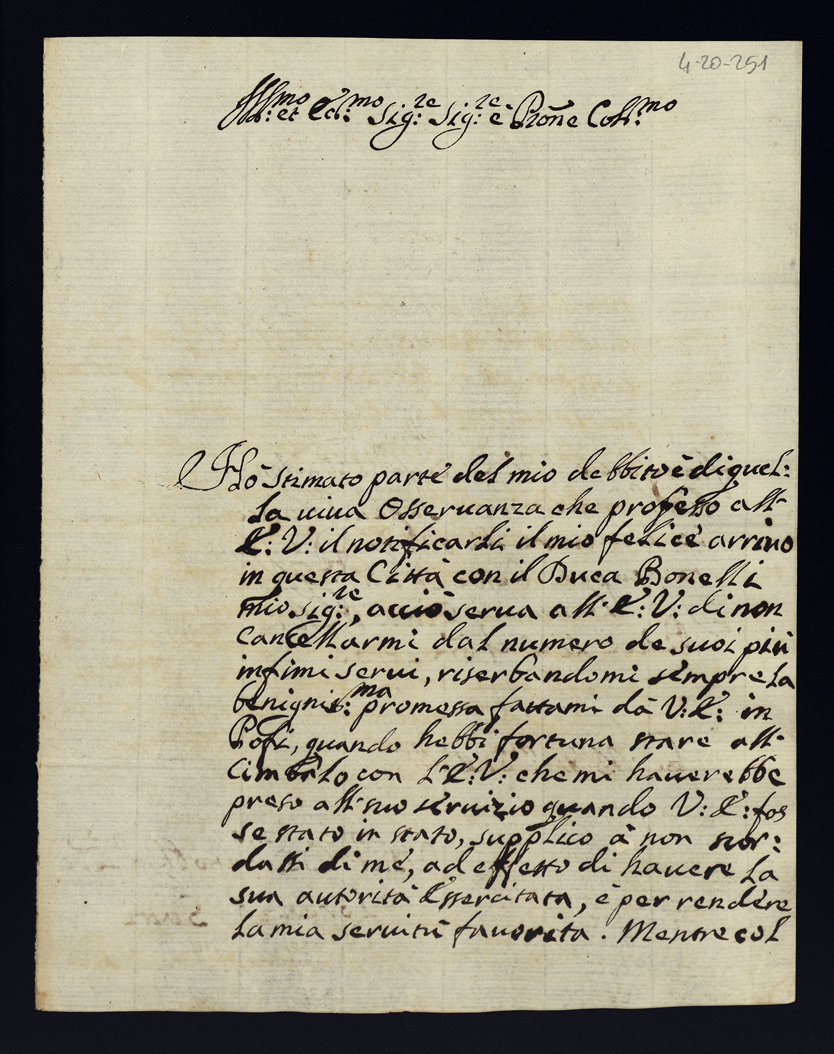 4-20-251
Ill:mo et Ecc:mo Sig:re Sig:re è Pròne Coll:mo
Hò stimato parte del mio debbito è di quel:
la viva Osservanza che professo all'
E: V: il notificarli il mio felice arrivo
in questa Città con il Duca Bonelli
mio sig:re, acciò serva all' E: V: di non
cancellarmi dal numero de suoi più
infimi servi, riserbandomi sempre la
benignis:ma promessa fattami dà V: E: in
Pofi, quando hebbi fortuna stare all'
Cimbalo con L'E: V: che mi haverebbe
preso all suo servizio quando V: E: fos
se stato in stato, supplico à non scor:
darsi di me, ad effetto di havere La
sua autorità Essercitata, è per rendere
La mia servitù favorita. Mentre col